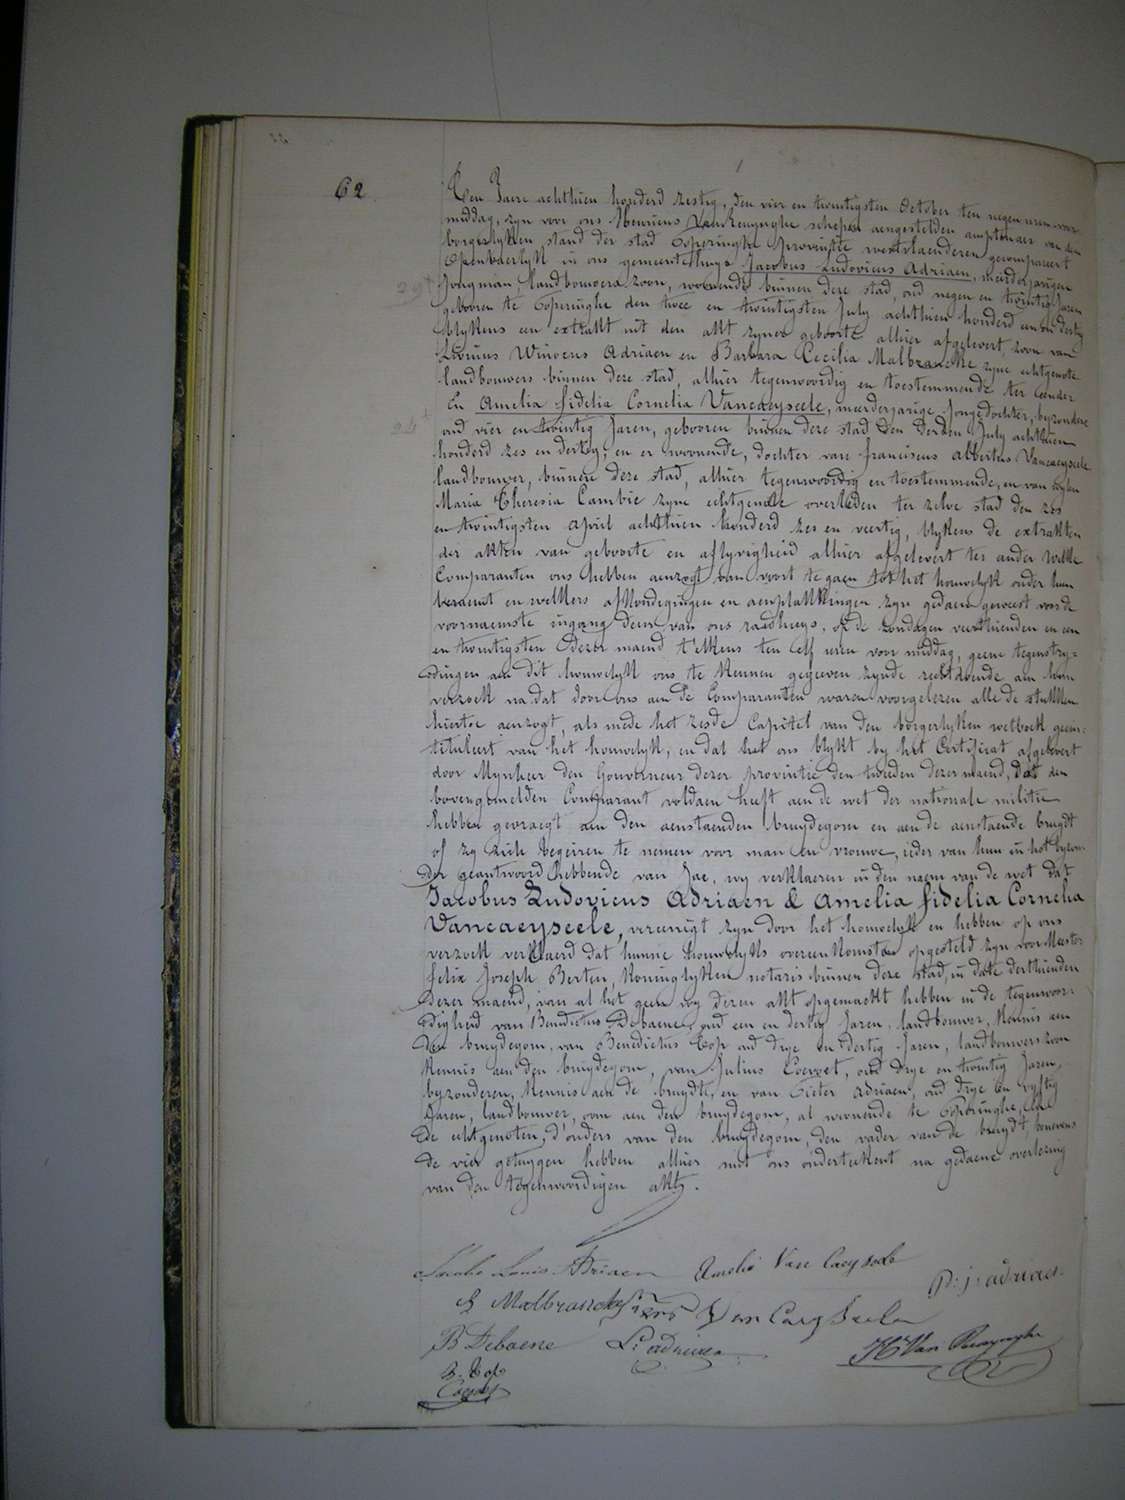 62
Ten Jaere achthien honderd zestig, den vier en twintigsten October ten negen uren voor
middag, zyn voor ons Henricus Van Renynghe schepen aengestelden amptenaer van den
borgerlyken stand der stad Poperinghe provintie westvlaenderen gecompareert
openbaerlyk in ons gemeentehuys Jacobus Ludovicus Adriaen, meerderjarigen
Jongman, landbouwers zoon, woonende binnen deze stad, oud negen en twintig Jaren
29
geboren te Poperinghe den twee en twintigsten July achthien honderd een en dertig
blykens een extrakt uit den akt zyner geboorte alhier afgelevert, zoon van
Livinus Adriaen en Barbara Cecilia Malbrancke zyne echtgenote
landbouwers binnen deze stad, alhier tegenwoordig en toestemmende ter eender
En Amelia fidelia Cornelia Vancaeyseele, meerderjarige Jonge dochter, byzondere
24
oud vier en twintig Jaren, gebooren binnen deze stad den derden July achthien
honderd zes en dertig, en er woonende, dochter van franciscus albertus Vancaeyseele
landbouwer, binnen deze stad, alhier tegenwoordig en toestemmende, en van wylen
Maria Theresia Cambie zyne echtgenote overleden ter zelve stad den zes
en twintigsten april achthien honderd zes en veertig, blykens de extrakten
der akten van geboorte en aflyvigheid alhier afgelevert ter ander welke
Comparanten ons hebben aenzogt van voort te gaen tot het houwelyk onder hun
beraemt en welkers afkondegingen en aenplakkingen zyn gedaen geweest voor de
voornaemste ingang deur van ons raedhuys, op de zondagen veerthienden en een
en twintigsten dezer maend t'elkens ten elf uren voor middag, geene tegenstry=
dingen aen dit houwelyk ons te kennen gegeeven zynde rechtdoende aen hun
verzoek na dat door ons aen de Comparanten waren voorgelezen alle de stukken
hiertoe aenzogt, als mede het zesde Capitel van den borgerlyken wetboek geein=
tituleert van het houwelyk, en dat het ons blykt by het Certificat afgelevert
door Mynheer den Gouverneur dezer provintie den tweeden dezer maend, dat den
bovengemelden Comparant voldaen heeft aen de wet der nationale militie
hebben gevraegt aen den aenstaenden bruydegom en aen de aenstaende bruydt
of zy zich begeiren te nemen voor man en vrouwe, ieder van hun in het byzon=
der geantwoord hebbende van Jae, wy verklaeren in den naem van de wet dat
Jacobus Ludovicus Adriaen & Amelia fidelia Cornelia
Vancaeyseele, vereenigt zyn door het houwelyk en hebben op ons
verzoek verklaerd dat hunne houwelyks overeenkomsten opgesteld zyn voor Meester
felix Joseph Berten, Koninglyken notaris binnen deze stad, in date derthienden
dezer maend, van al het geen wy dezen akt opgemaekt hebben in de tegenwoor=
digheid van Benedictus Debaene, oud een en dertig Jaren, landbouwer, kennis aen
den bruydegom, van Benedictus Top oud drye en dertig Jaren, landbouwers zoon
kennis aen den bruydegom, van Julius Coevoet, oud drye en twintig Jaren,
byzonderen, kennis aen de bruydt, en van Pieter Adriaen, oud drye en vyftig
Jaren, landbouwer, oom aen den bruydegom, al woonende te Poperinghe, en
de echtgenoten, d'ouders van den bruydegom, den vader van de bruydt, benevens
de vier getuygen hebben alhier met ons onderteekent na gedaene overlezing
van den tegenwoordigen akt.
Louis Adriaen Amelie Van Caeyseele P: j: adriaen
Malbrancke Van Caeyseele
B Debaene L: adriaen H Van Renynghe
B. Top